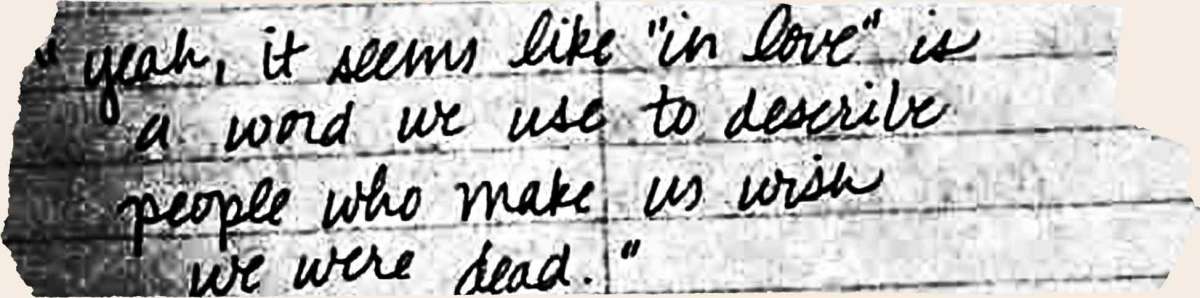 "yeah, it seems like "in love" is
a word we use to describe
people who make us wish
we were dead."